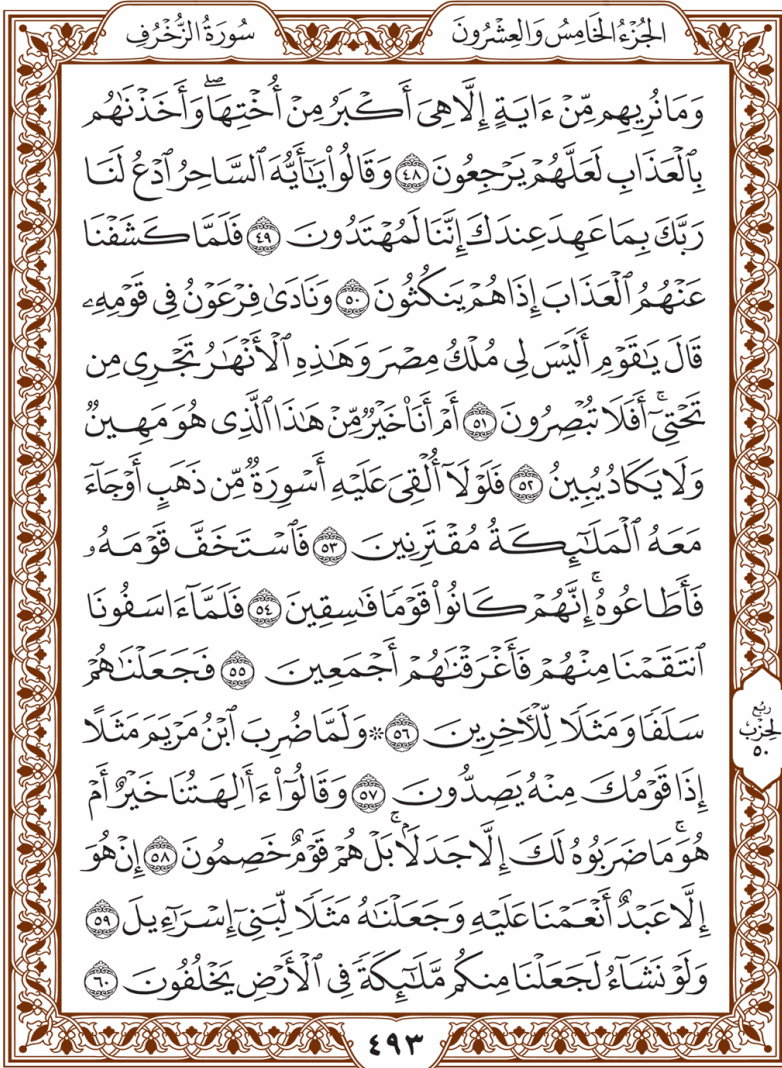 الجُزْءُ الخَامِسُ وَالعِشْرُونَ
سُورَةُ الزُّخْرُفِ
وَمَا نُرِيهِم مِّنْ ءَايَةٍ إِلَّا هِىَ أَكْبَرُ مِنْ أُخْتِهَاۖ وَأَخَذْنَٰهُم
بِٱلْعَذَابِ لَعَلَّهُمْ يَرْجِعُونَ ٤٨ وَقَالُوا۟ يَٰٓأَيُّهَ ٱلسَّاحِرُ ٱدْعُ لَنَا
رَبَّكَ بِمَا عَهِدَ عِندَكَ إِنَّنَا لَمُهْتَدُونَ ٤٩ فَلَمَّا كَشَفْنَا
عَنْهُمُ ٱلْعَذَابَ إِذَا هُمْ يَنكُثُونَ ٥٠ وَنَادَىٰ فِرْعَوْنُ فِى قَوْمِهِۦ
قَالَ يَٰقَوْمِ أَلَيْسَ لِى مُلْكُ مِصْرَ وَهَٰذِهِ ٱلْأَنْهَٰرُ تَجْرِى مِن
تَحْتِىٓۚ أَفَلَا تُبْصِرُونَ ٥١ أَمْ أَنَا۠ خَيْرٌ مِّنْ هَٰذَا ٱلَّذِى هُوَ مَهِينٌ
وَلَا يَكَادُ يُبِينُ ٥٢ فَلَوْلَآ أُلْقِىَ عَلَيْهِ أَسْوِرَةٌ مِّن ذَهَبٍ أَوْ جَآءَ
مَعَهُ ٱلْمَلَٰٓئِكَةُ مُقْتَرِنِينَ ٥٣ فَٱسْتَخَفَّ قَوْمَهُۥ
فَأَطَاعُوهُۚ إِنَّهُمْ كَانُوا۟ قَوْمًا فَٰسِقِينَ ٥٤ فَلَمَّآ ءَاسَفُونَا
ٱنتَقَمْنَا مِنْهُمْ فَأَغْرَقْنَٰهُمْ أَجْمَعِينَ ٥٥ فَجَعَلْنَٰهُمْ
سَلَفًا وَمَثَلًا لِّلْءَاخِرِينَ ٥٦ ۞ وَلَمَّا ضُرِبَ ٱبْنُ مَرْيَمَ مَثَلًا
إِذَا قَوْمُكَ مِنْهُ يَصِدُّونَ ٥٧ وَقَالُوٓا۟ ءَأَٰلِهَتُنَا خَيْرٌ أَمْ
هُوَۚ مَا ضَرَبُوهُ لَكَ إِلَّا جَدَلَۢاۚ بَلْ هُمْ قَوْمٌ خَصِمُونَ ٥٨ إِنْ هُوَ
إِلَّا عَبْدٌ أَنْعَمْنَا عَلَيْهِ وَجَعَلْنَٰهُ مَثَلًا لِّبَنِىٓ إِسْرَٰٓءِيلَ ٥٩
وَلَوْ نَشَآءُ لَجَعَلْنَا مِنكُم مَّلَٰٓئِكَةً فِى ٱلْأَرْضِ يَخْلُفُونَ ٦٠
ربع
الحزب
٥٠
٤٩٣